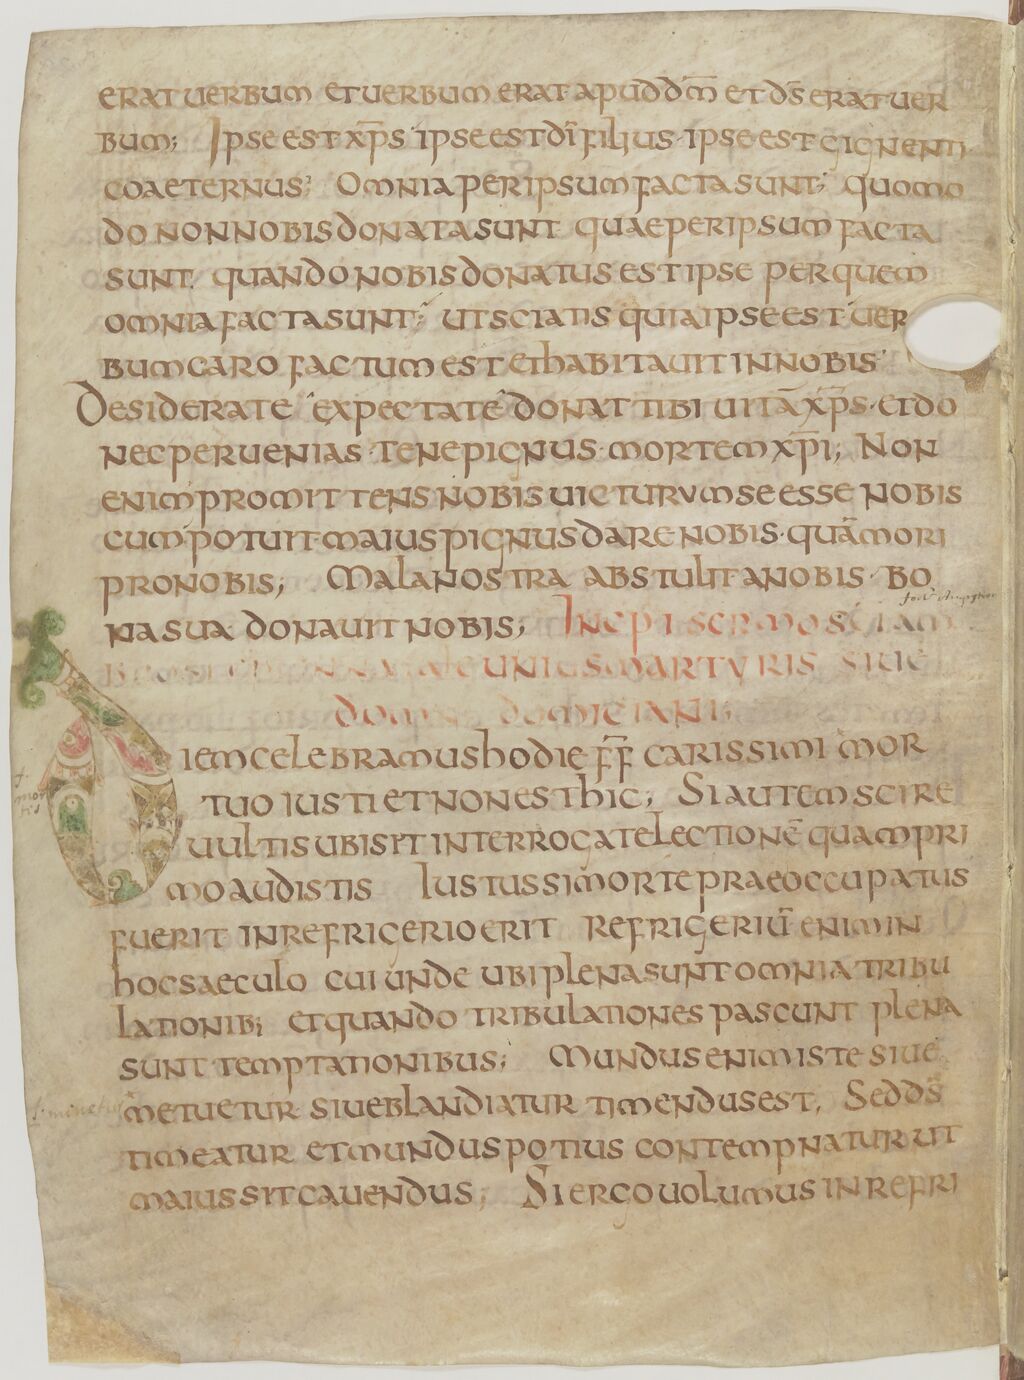 erat uerbum et uerbum erat apud dm̅ et ds̅ erat uer
bum; Ipse est xp̅s ipse est di̅ filius · ipse est gignenti
coaeternus; Omnia per ipsum facta sunt; quomo
do non nobis donata sunt quae per ipsum facta
sunt. quando nobis donatus est ipse per quem
omnia facta sunt; ut sciatis quia ipse est uer
bum caro factum est et habitauit in nobis
Desiderate expectate donat tibi uitā xp̅s · et do
nec peruenias · tene pignus · mortem xp̅i; Non
enim promittens nobis uicturum se esse nobis
cum potuit · maius pignus dare nobis · quā mori
pro nobis; Mala nostra abstulit a nobis · bo
na sua donauit nobis; Incipi sermo
martyris siue
Diem celebramus hodie f̅f̅ carissimi mor
tuo iusti et non est hic; Si autem scire
uultis ubi sit interrogate lectionē quam pri
mo audistis Iustus si morte praeoccupatus
fuerit in refrigerio erit Refrigeriū enim in
hoc saeculo cui unde ubi plena sunt omnia tribu
lationib; et quando tribulationes pascunt plena
sunt temptationibus; Mundus enim iste siue
metuetur siue blandiatur timendus est, Sed ds̅
timeatur et mundus potius contempnatur ut
maius sit cauendus; Si ergo uolumus in refri